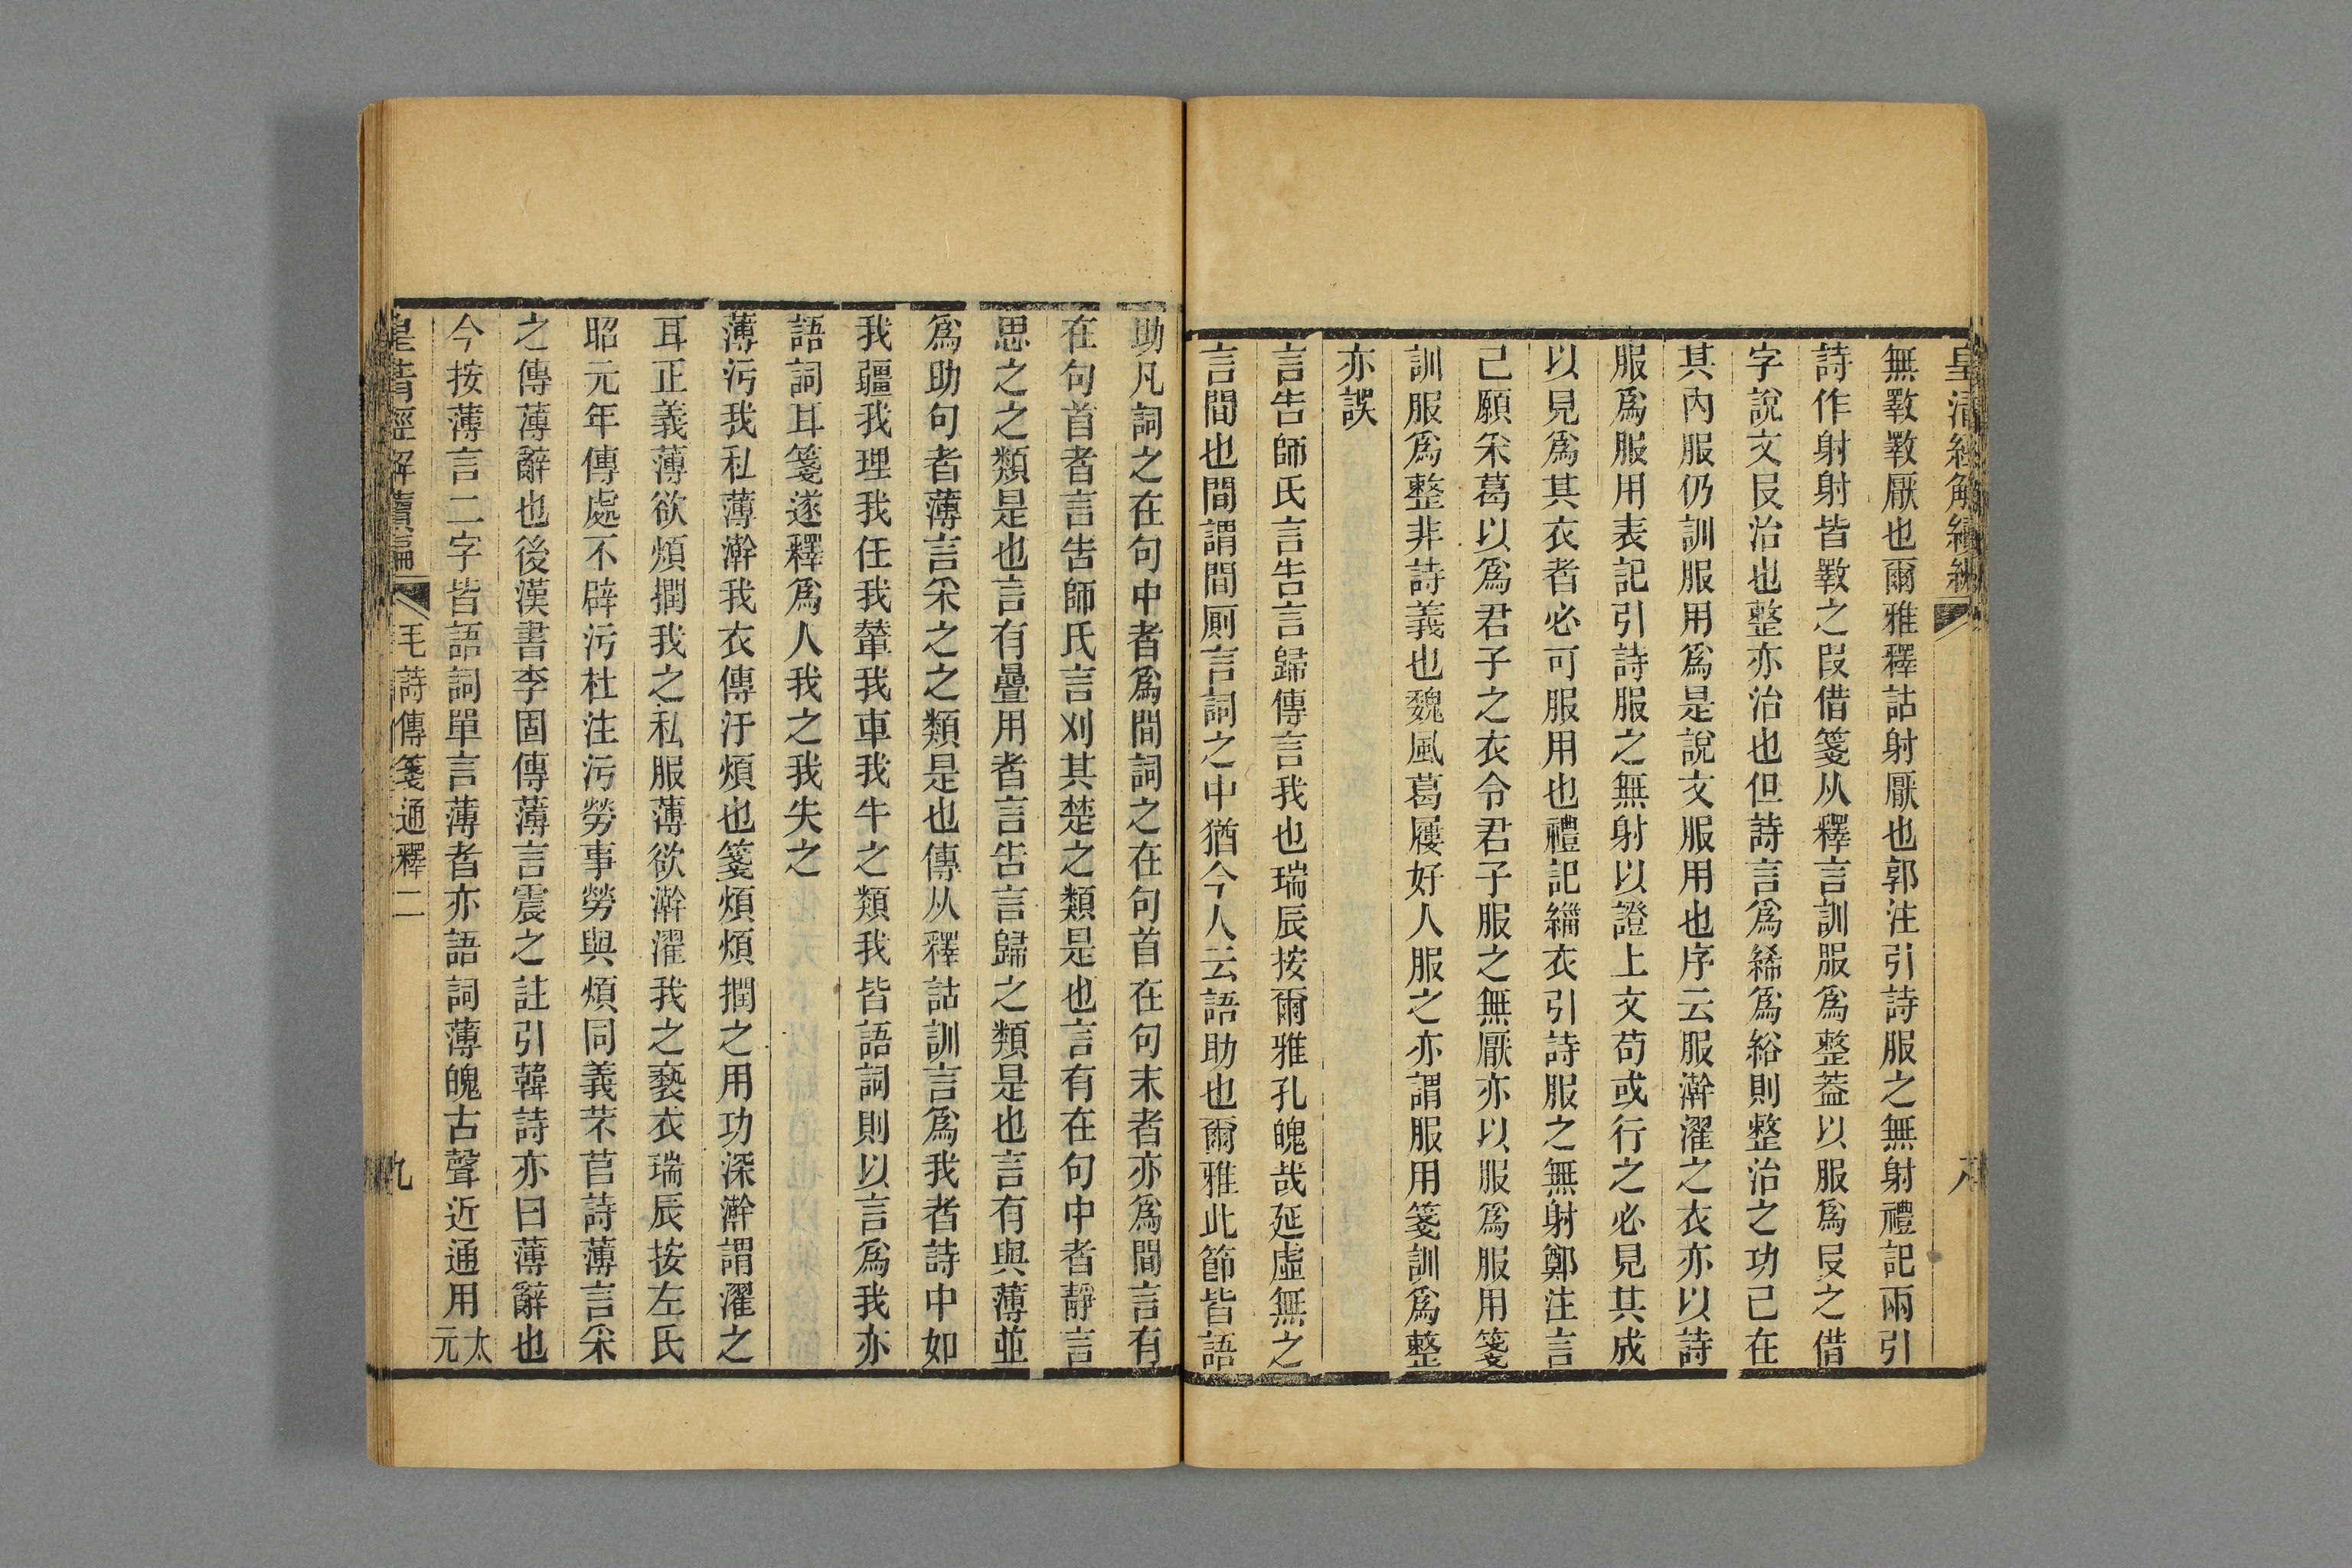 皇清經解續編 八
無斁斁厭也爾雅釋詁射厭也郭注引詩服之無射禮記兩引
詩作射射皆斁之叚借箋从釋言訓服爲整葢以服爲𠬝之借
字說文𠬝治也整亦治也但詩言爲絺爲綌則整治之功已在
其內服仍訓服用爲是說文服用也序云服澣濯之衣亦以詩
服爲服用表記引詩服之無射以證上文苟或行之必見其成
以見爲其衣者必可服用也禮記緇衣引詩服之無射鄭注言
己願采葛以爲君子之衣令君子服之無厭亦以服爲服用箋
訓服爲整非詩義也魏風葛屨好人服之亦謂服用箋訓爲整
亦誤
言告師氏言告言歸傳言我也瑞辰按爾雅孔魄哉延虛無之
言間也間謂間厠言詞之中猶今人云語助也爾雅此節皆語
助凡詞之在句中者爲間詞之在句首在句末者亦爲間言有
在句首者言告師氏言刈其楚之類是也言有在句中者靜言
思之之類是也言有疊用者言告言歸之類是也言有與薄並
爲助句者薄言采之之類是也傳从釋詁訓言爲我者詩中如
我疆我理我任我輦我車我牛之類我皆語詞則以言爲我亦
語詞耳箋遂釋爲人我之我失之
薄污我私薄澣我衣傳汙煩也箋煩煩撋之用功深澣謂濯之
耳正義薄欲煩撋我之私服薄欲澣濯我之褻衣瑞辰按左氏
昭元年傳處不辟污杜注污勞事勞與煩同義芣苢詩薄言采
之傳薄辭也後漢書李固傳薄言震之註引韓詩亦曰薄辭也
今按薄言二字皆語詞單言薄者亦語詞薄魄古聲近通用太元
皇清經解續編 毛詩傳箋通釋二 九